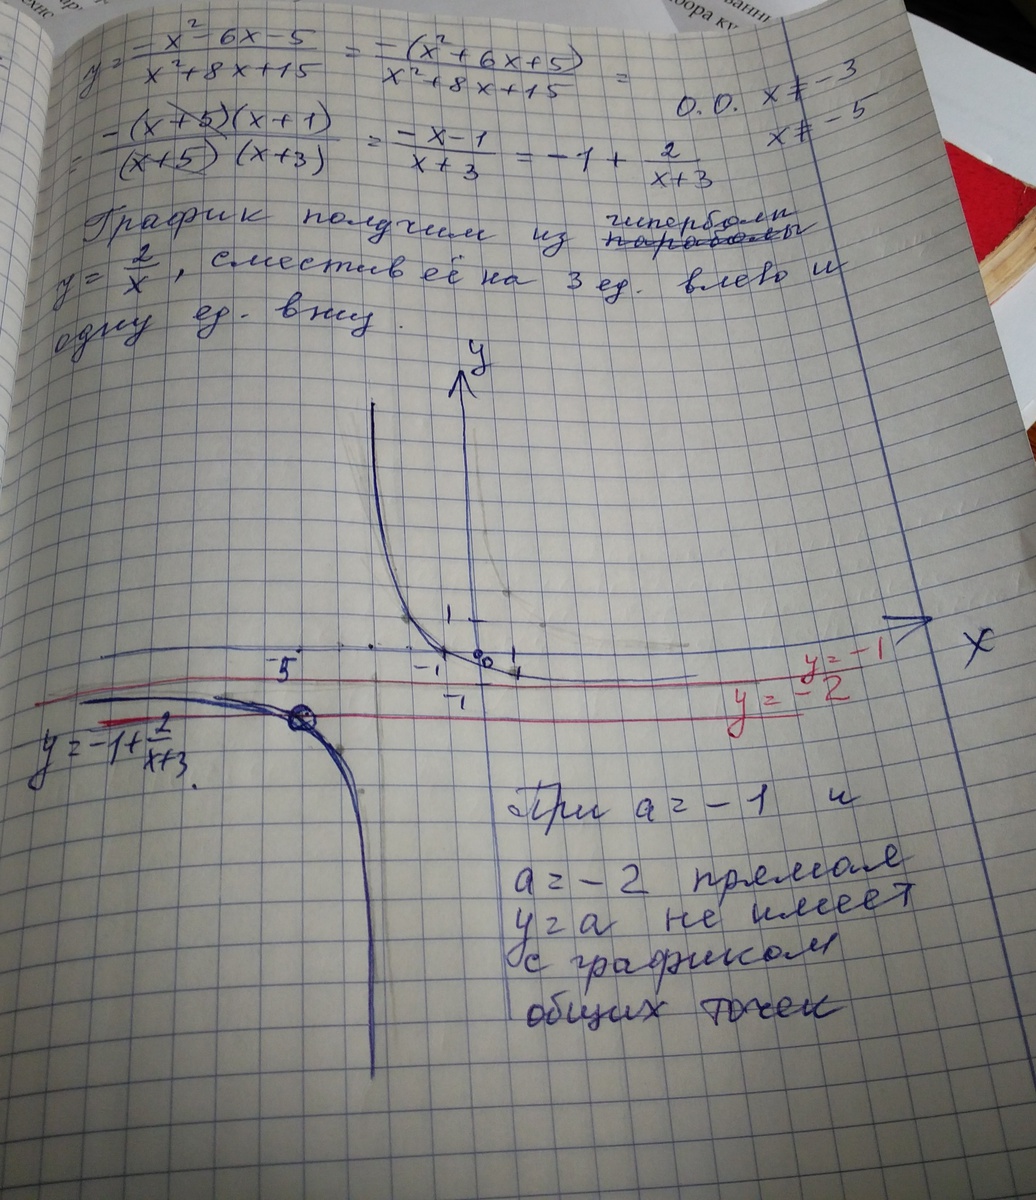 y = (-x² - 6x - 5)/(x² + 8x + 15) = (-(x² + 6x + 5))/(x² + 8x + 15) =
О.О. x ≠ -3
x ≠ -5
= (-(x+5)(x+1))/((x+5)(x+3)) = (-x-1)/(x+3) = -1 + 2/(x+3)
График получим из гиперболы
y = 2/x, сместив её на 3 ед. влево и
одну ед. вниз.
y
1
-5
-1
0
1
x
-1
y = -1
y = -2
y = -1 + 2/(x+3).
При a = -1 и
a = -2 прямая
y = a не имеет
с графиком
общих точек